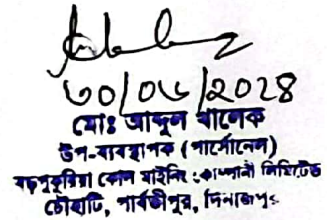 ৩০/০৬/২০২৪
মোঃ আব্দুল খালেক
উপ-ব্যবস্থাপক (পার্সোনেল)
বড়পুকুরিয়া কোল মাইনিং কোম্পানী লিমিটেড
চৌহাটি, পার্বতীপুর, দিনাজপুর।